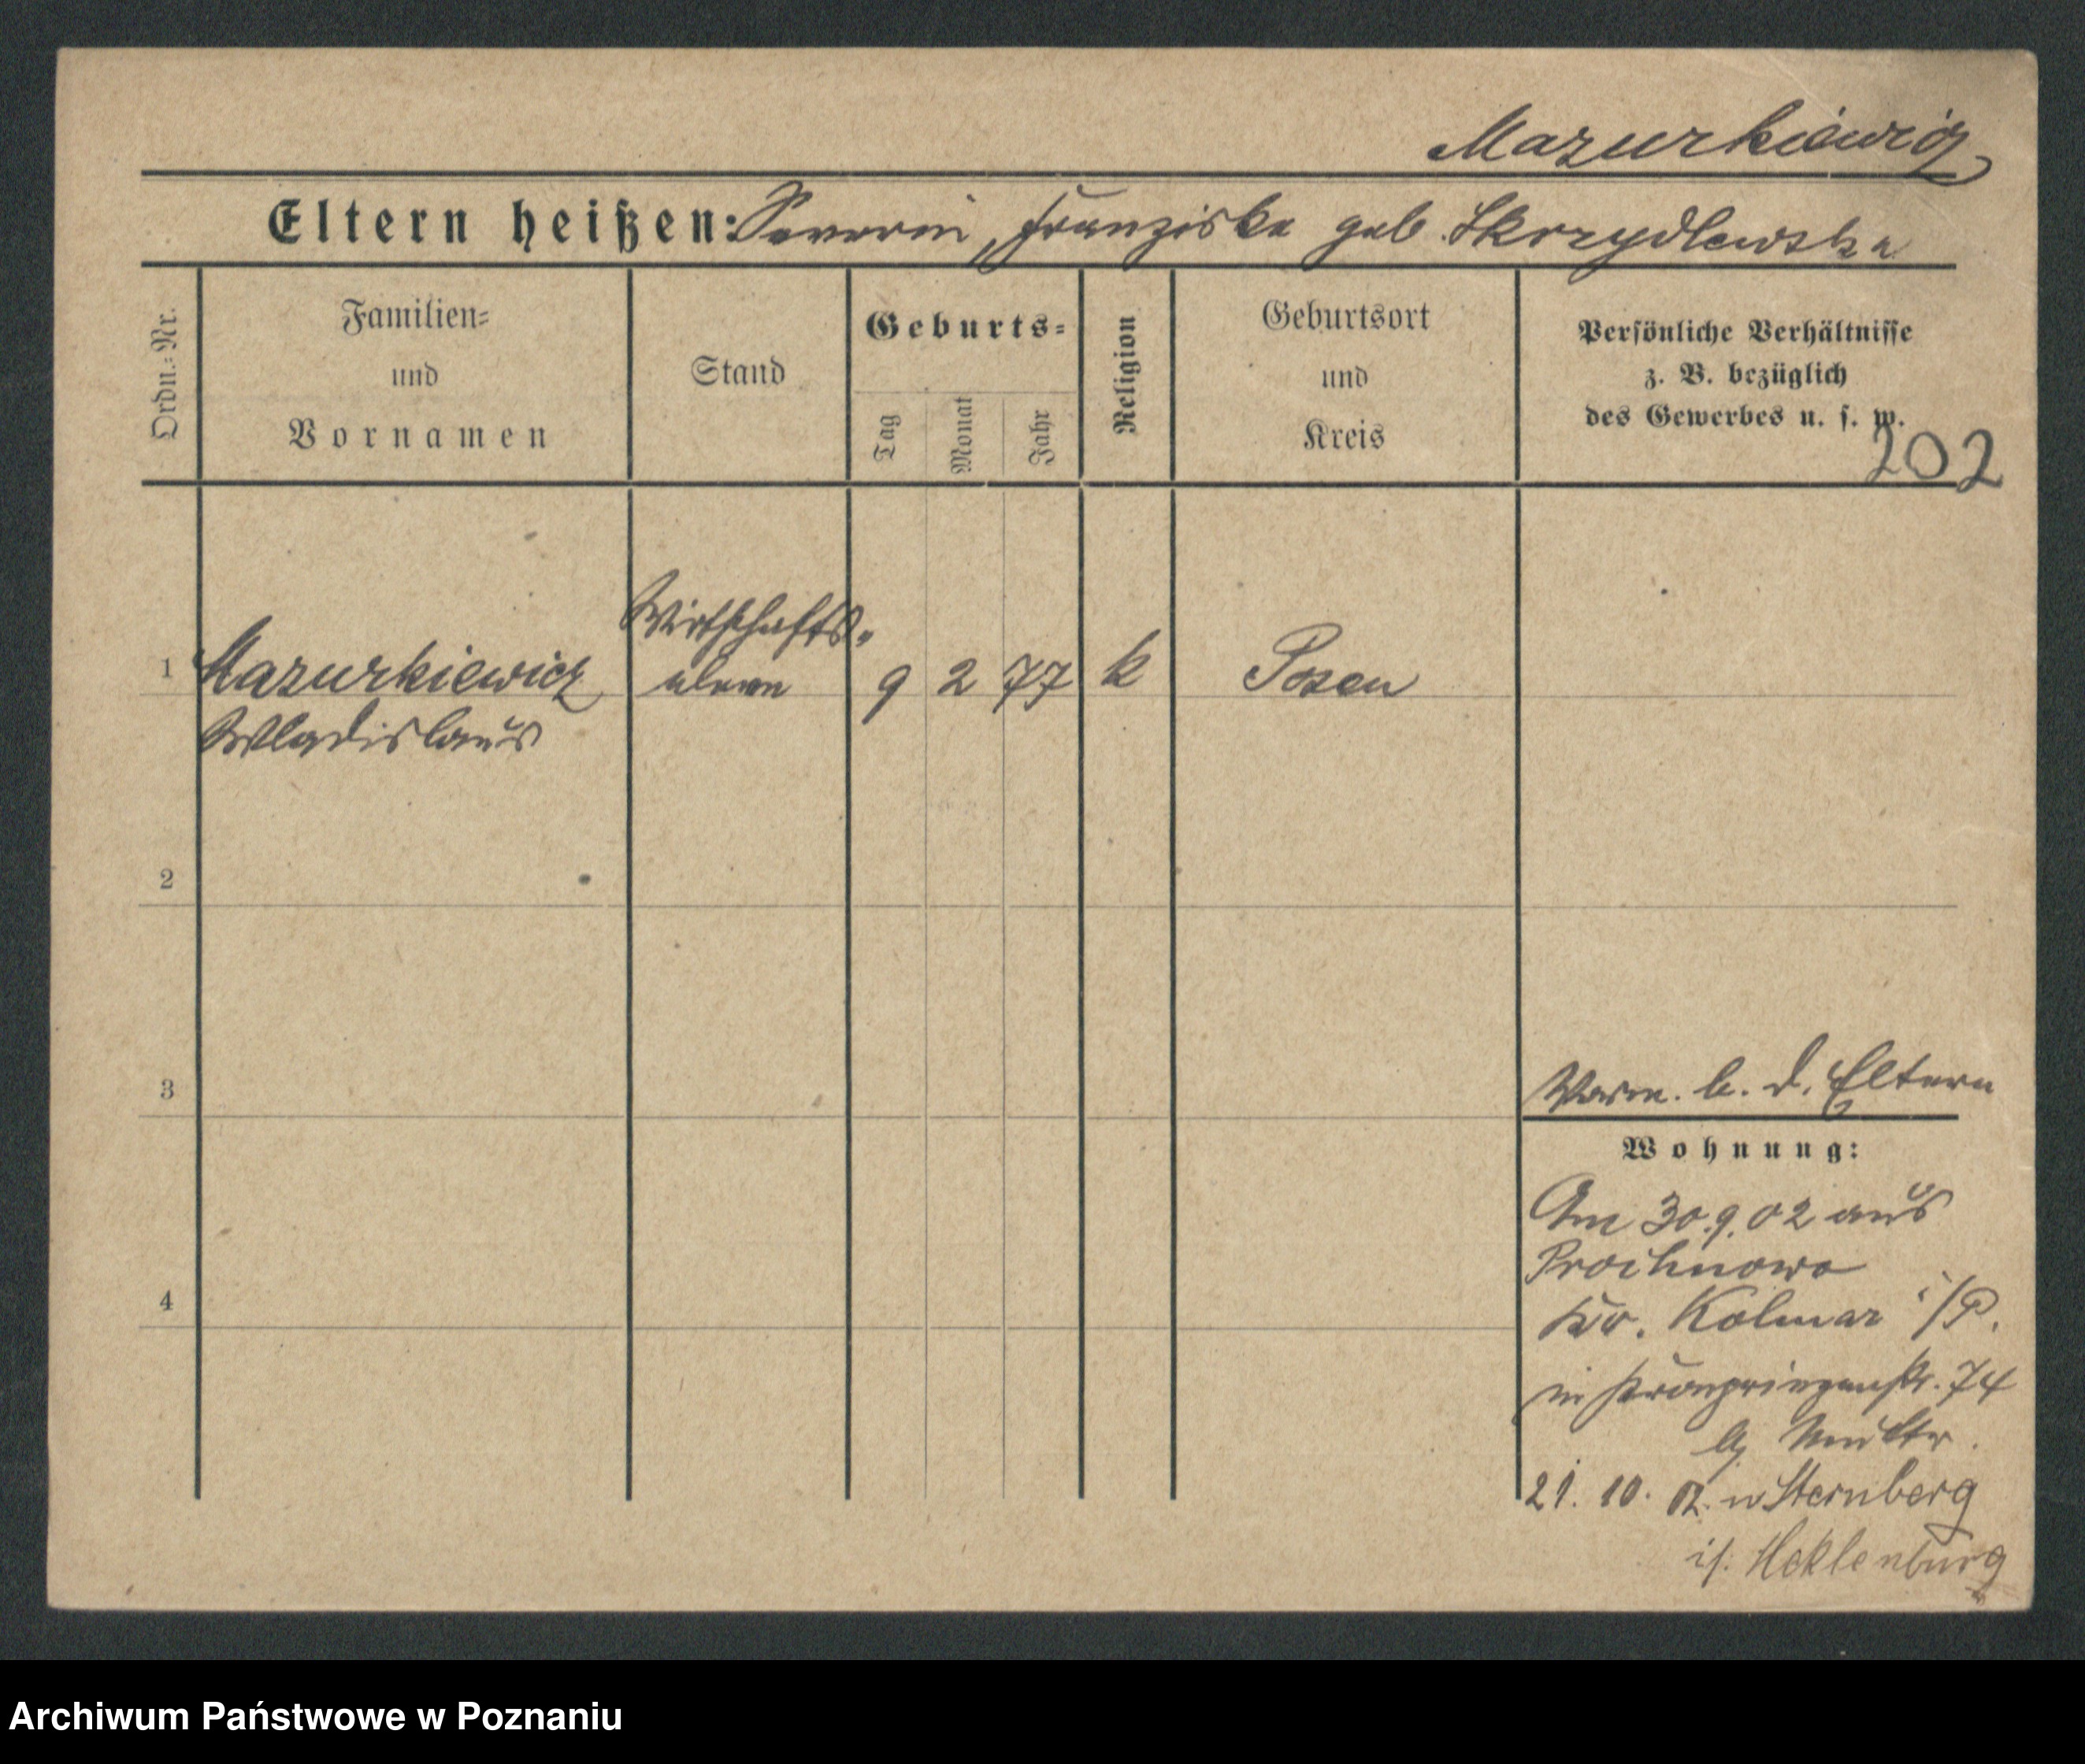 Mazurkiewicz
Eltern heißen: Severin, Franziska geb. Skrzydlewska
Ordn.-Nr.
Familien-
und
Vornamen
Stand
Geburts-
Tag
Monat
Jahr
Religion
Geburtsort
und
Kreis
Persönliche Verhältnisse
z. B. bezüglich
des Gewerbes u. s. w.
202
Wirthschafts-
1 Mazurkiewicz eleve 9 2 77 k Posen
Wladislaus
2
3
b. d. Eltern
Wohnung:
Am 30.9.02 aus
Prochnowo
Kr. Kolmar i/P.
in Kronprinzenstr. 74
b/ Mutter.
21. 10. 02. n Sternberg
i/. Meklenburg
4
Archiwum Państwowe w Poznaniu